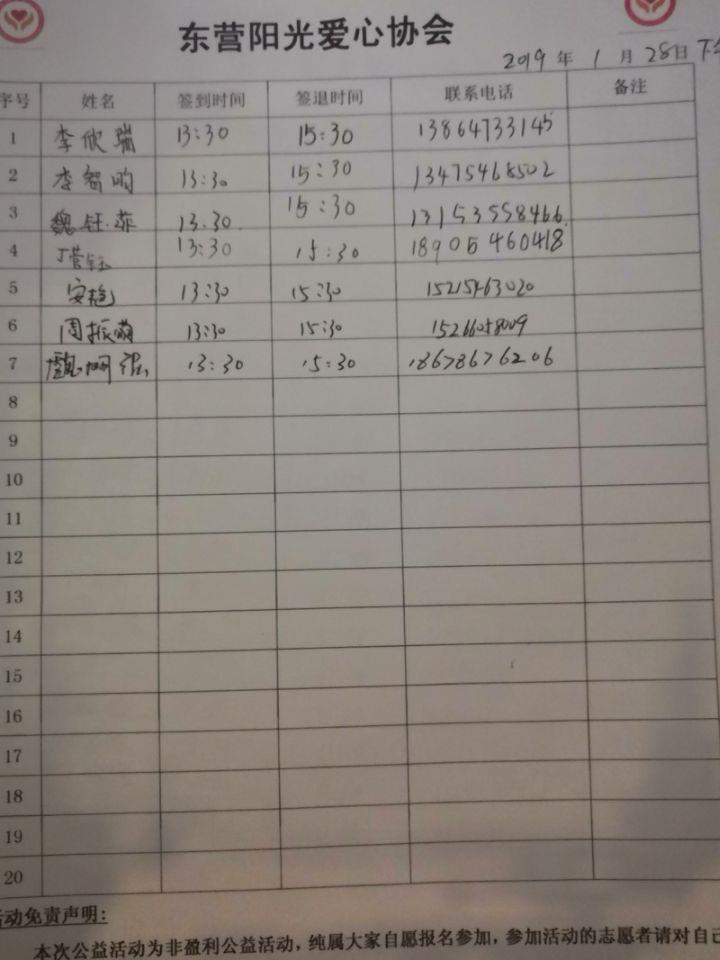 东营阳光爱心协会
2019 年 1 月 28日 下午
序号 姓名 签到时间 签退时间 联系电话 备注
1 李欣瑞 13:30 15:30 13864733145
2 李智昀 13:30 15:30 13475468502
3 魏钰菲 13.30 15:30 13153558466
4 丁营钰 13:30 15:30 18905460418
5 安艳 13:30 15:30
6 周振萌 13:30 15:30
7 13:30 15:30 18678676206
8
9
10
11
12
13
14
15
16
17
18
19
20
活动免责声明:
本次公益活动为非盈利公益活动，纯属大家自愿报名参加，参加活动的志愿者请对自己